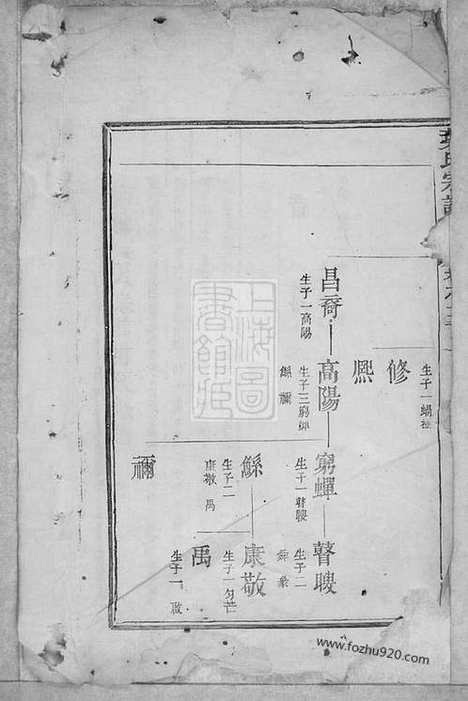 氏宗譜
修
生子一蝸
熙
昌裔
生子一高陽
高陽
生子三窮蟬
鯀 禰
窮蟬
生子一瞽瞍
瞽瞍
生子二
舜 象
鯀
生子二
康敬 禹
康敬
生子一勾芒
禹
生子一 啟
禰
上海圖書館藏
www.fozhu920.com